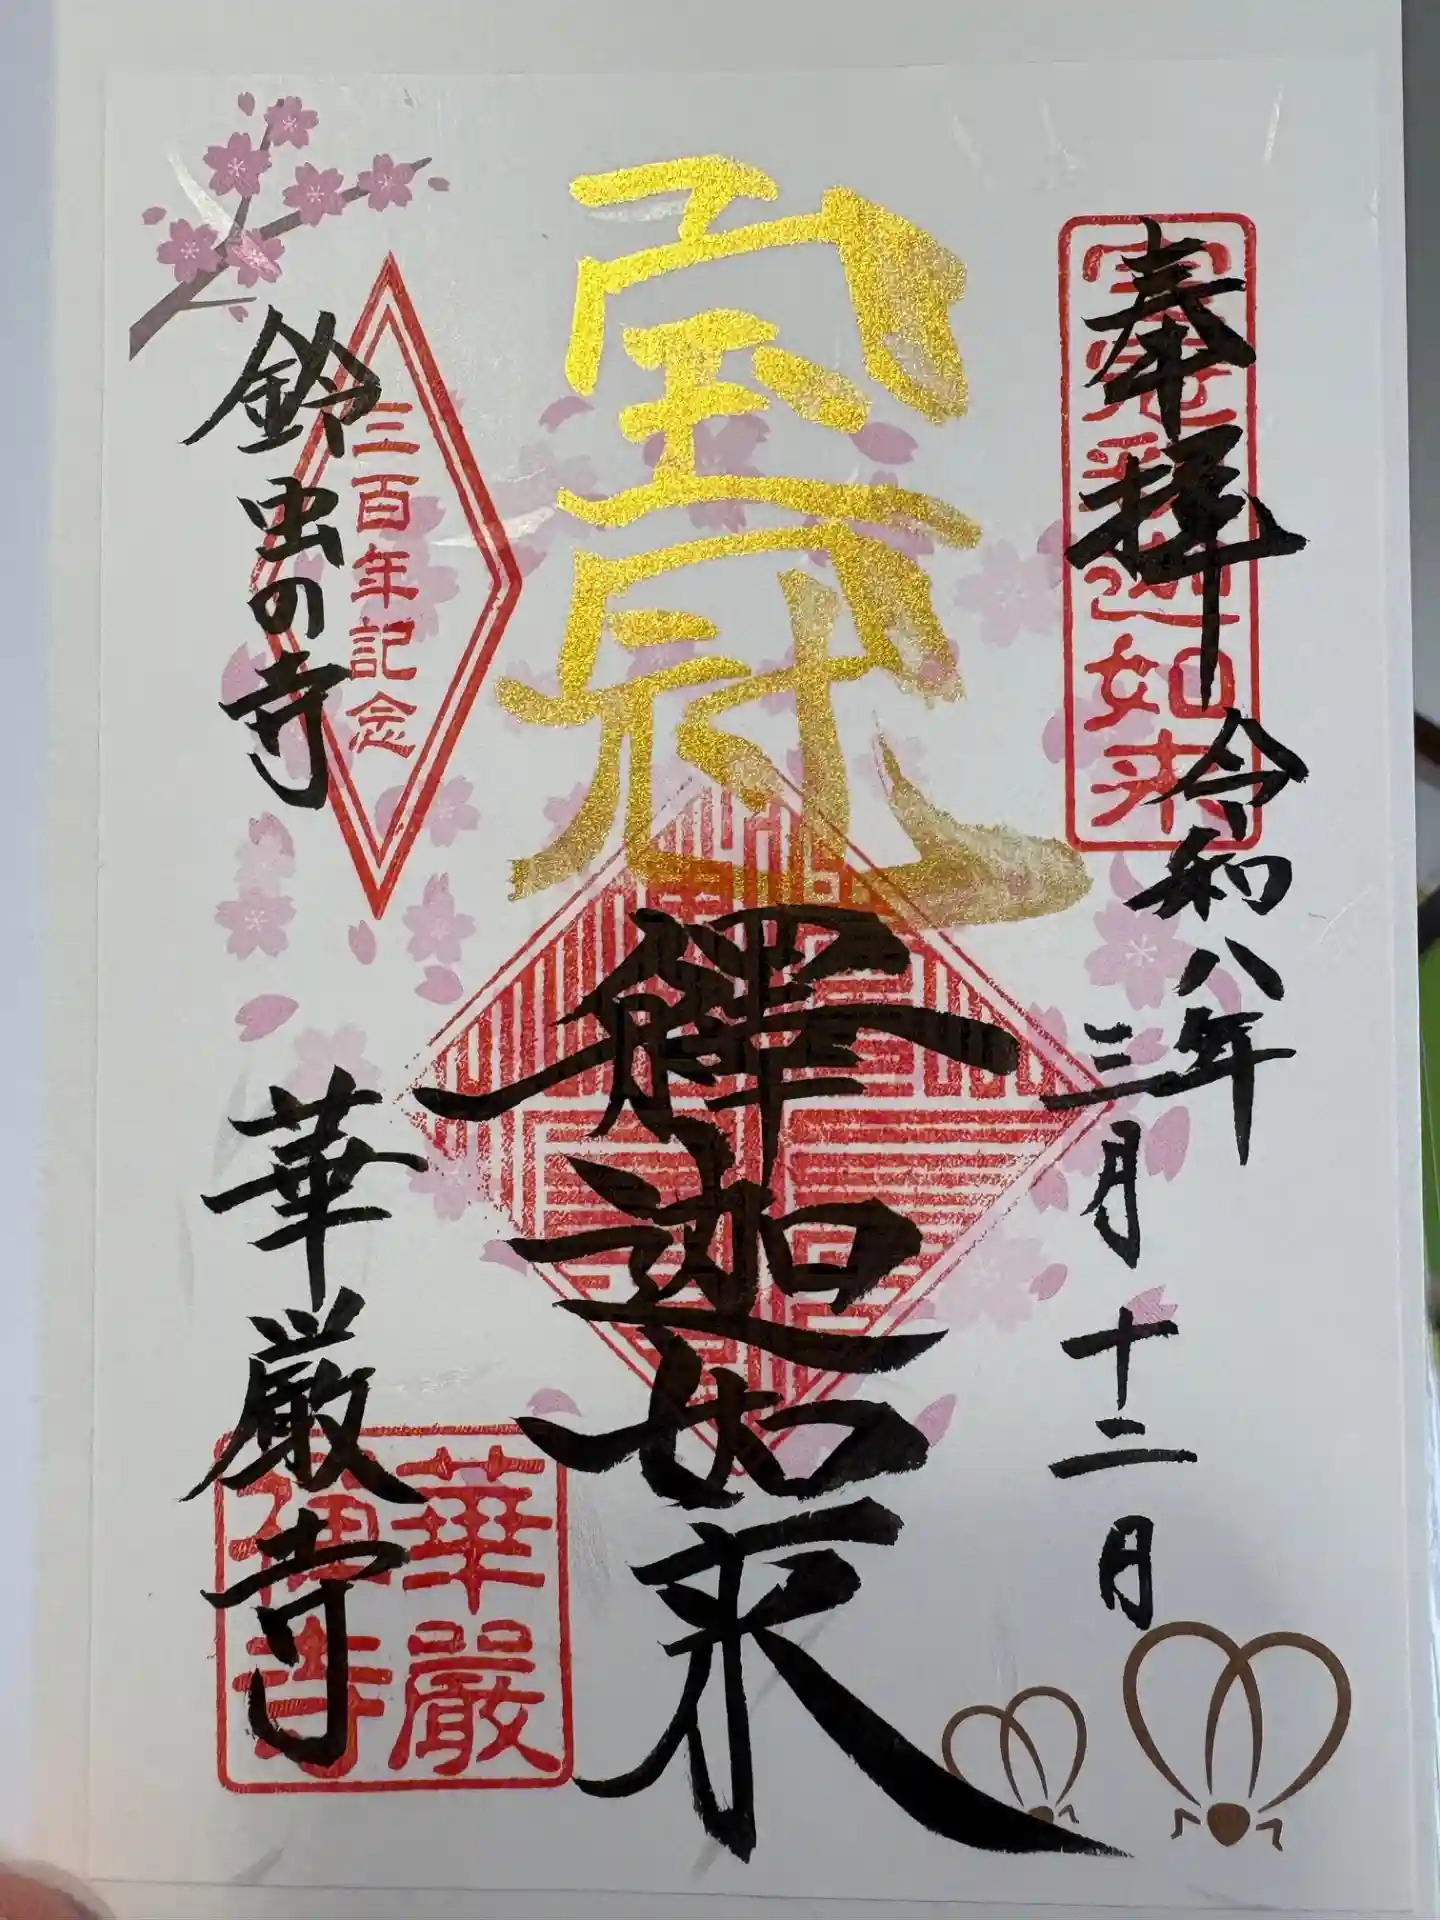 奉拝
令和八年
三月十二日
宝冠釋迦如来
宝冠
釋迦如来
三百年記念
鈴虫の寺
華厳寺
華嚴